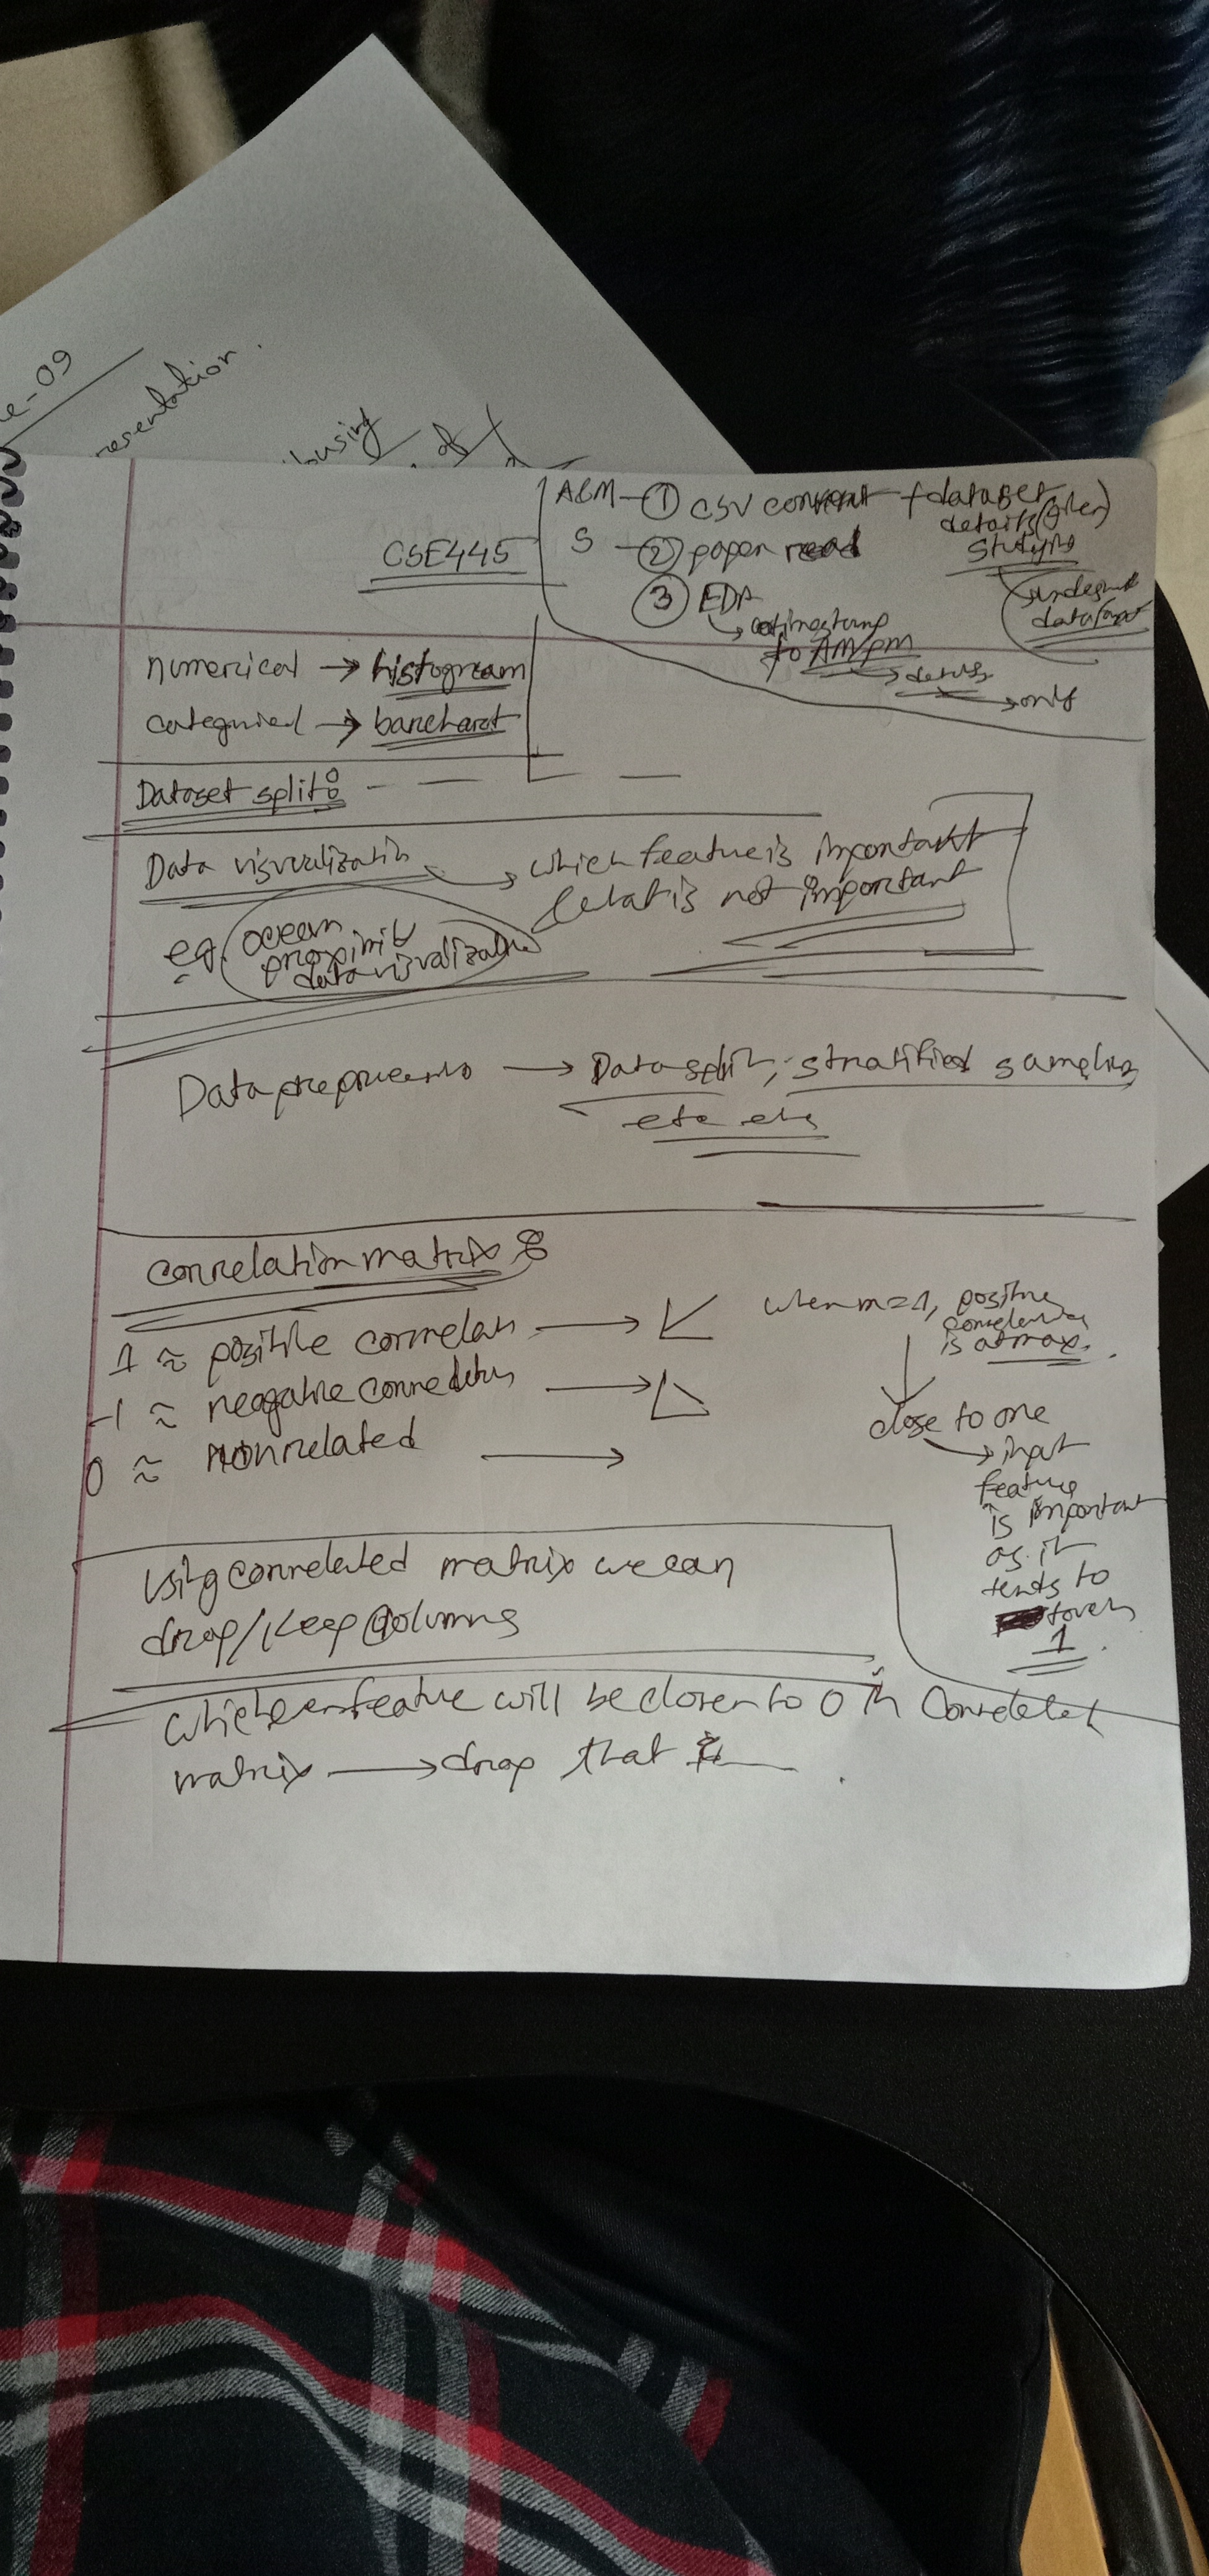 e-09
resentation.
CSE445
① CSV convert + dataset
details
studying
S — ② paper read
③ EDA
timestamp
to AM/PM
details
only
numerical → histogram
categorical → barchart
Dataset split:
Data visualization → which feature is important
what is not important
eg. ocean
proximity
data visualization
Data preprocessing → Data split, stratified sampling
etc etc
Correlation matrix:
1 ≈ positive correlation →
-1 ≈ negative correlation →
0 ≈ Nonrelated →
when m=1, positive
correlation
is at max.
close to one
→ input
feature
is important
as it
tends to
1
Using correlated matrix we can
drop/keep columns
Whichever feature will be closer to 0 in Correlated
matrix → drop that